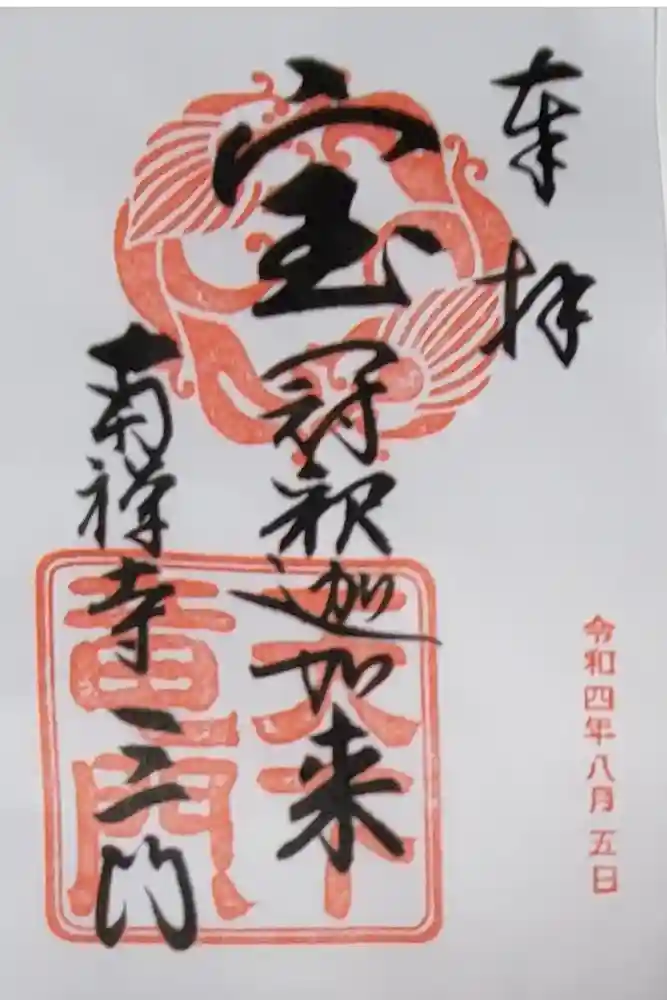 奉拝
宝冠釈迦如来
南禅寺三門
天下竜門
令和四年八月五日